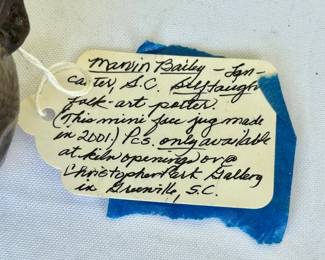 Marvin Bailey – Lan-
caster, S.C. self taught
folk-art potter.
(This mini face jug made
in 2001.) Pcs. only available
at kiln openings or @
Christopher Park Gallery
in Greenville, S.C.